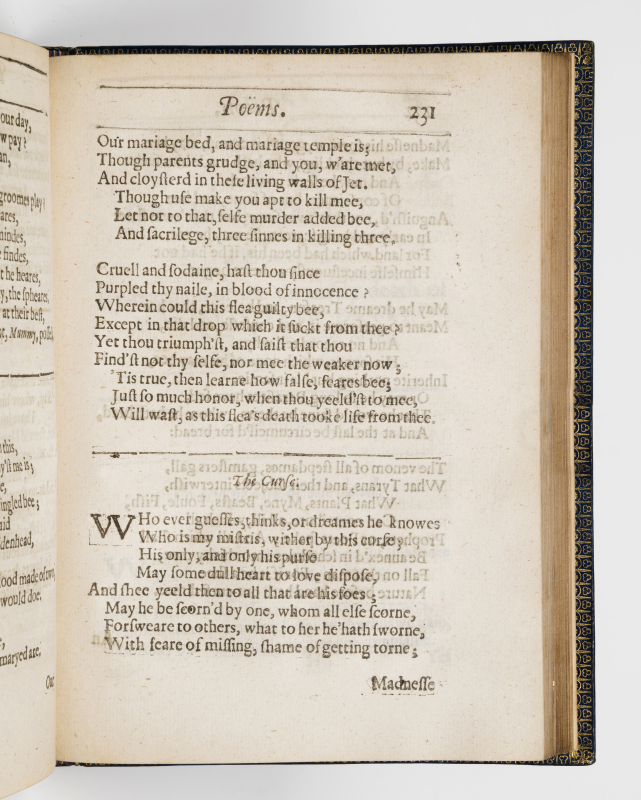 our day,
w pay?
an,
groomes play?
ares,
mindes,
e findes,
t he heares,
y, the spheares
at their best,
t, Mummy, possest
this,
y'st me is;
e,
ingled bee;
aid
denhead,
ood made of two
would doe.
e,
maryed are.
Our
Poëms. 231
Our mariage bed, and mariage temple is;
Though parents grudge, and you, w'are met,
And cloysterd in these living walls of Jet.
Though use make you apt to kill mee,
Let not to that, selfe murder added bee,
And sacrilege, three sinnes in killing three.
Cruell and sodaine, hast thou since
Purpled thy naile, in blood of innocence?
Wherein could this flea guilty bee,
Except in that drop which it suckt from thee?
Yet thou triumph'st, and saist that thou
Find'st not thy selfe, nor mee the weaker now;
'Tis true, then learne how false, feares bee;
Just so much honor, when thou yeeld'st to mee,
Will wast, as this flea's death tooke life from thee.
The Curse.
WHo ever guesses, thinks, or dreames he knowes
Who is my mistris, wither by this curse;
His only, and only his purse
May some dull heart to love dispose,
And shee yeeld then to all that are his foes;
May he be scorn'd by one, whom all else scorne,
Forsweare to others, what to her he'hath sworne,
With feare of missing, shame of getting torne;
Madnesse